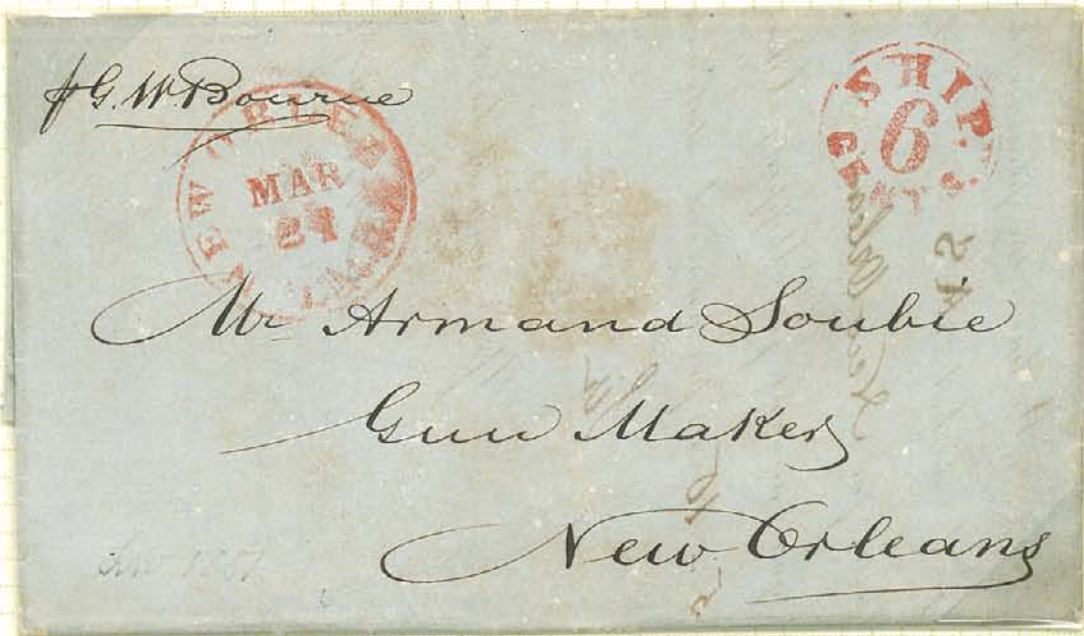 pr G. W. Bourne
NEW ORLEANS
LA.
MAR
21
SHIP
6
CENTS
Mr Armand Soubie
Gun Maker
New Orleans